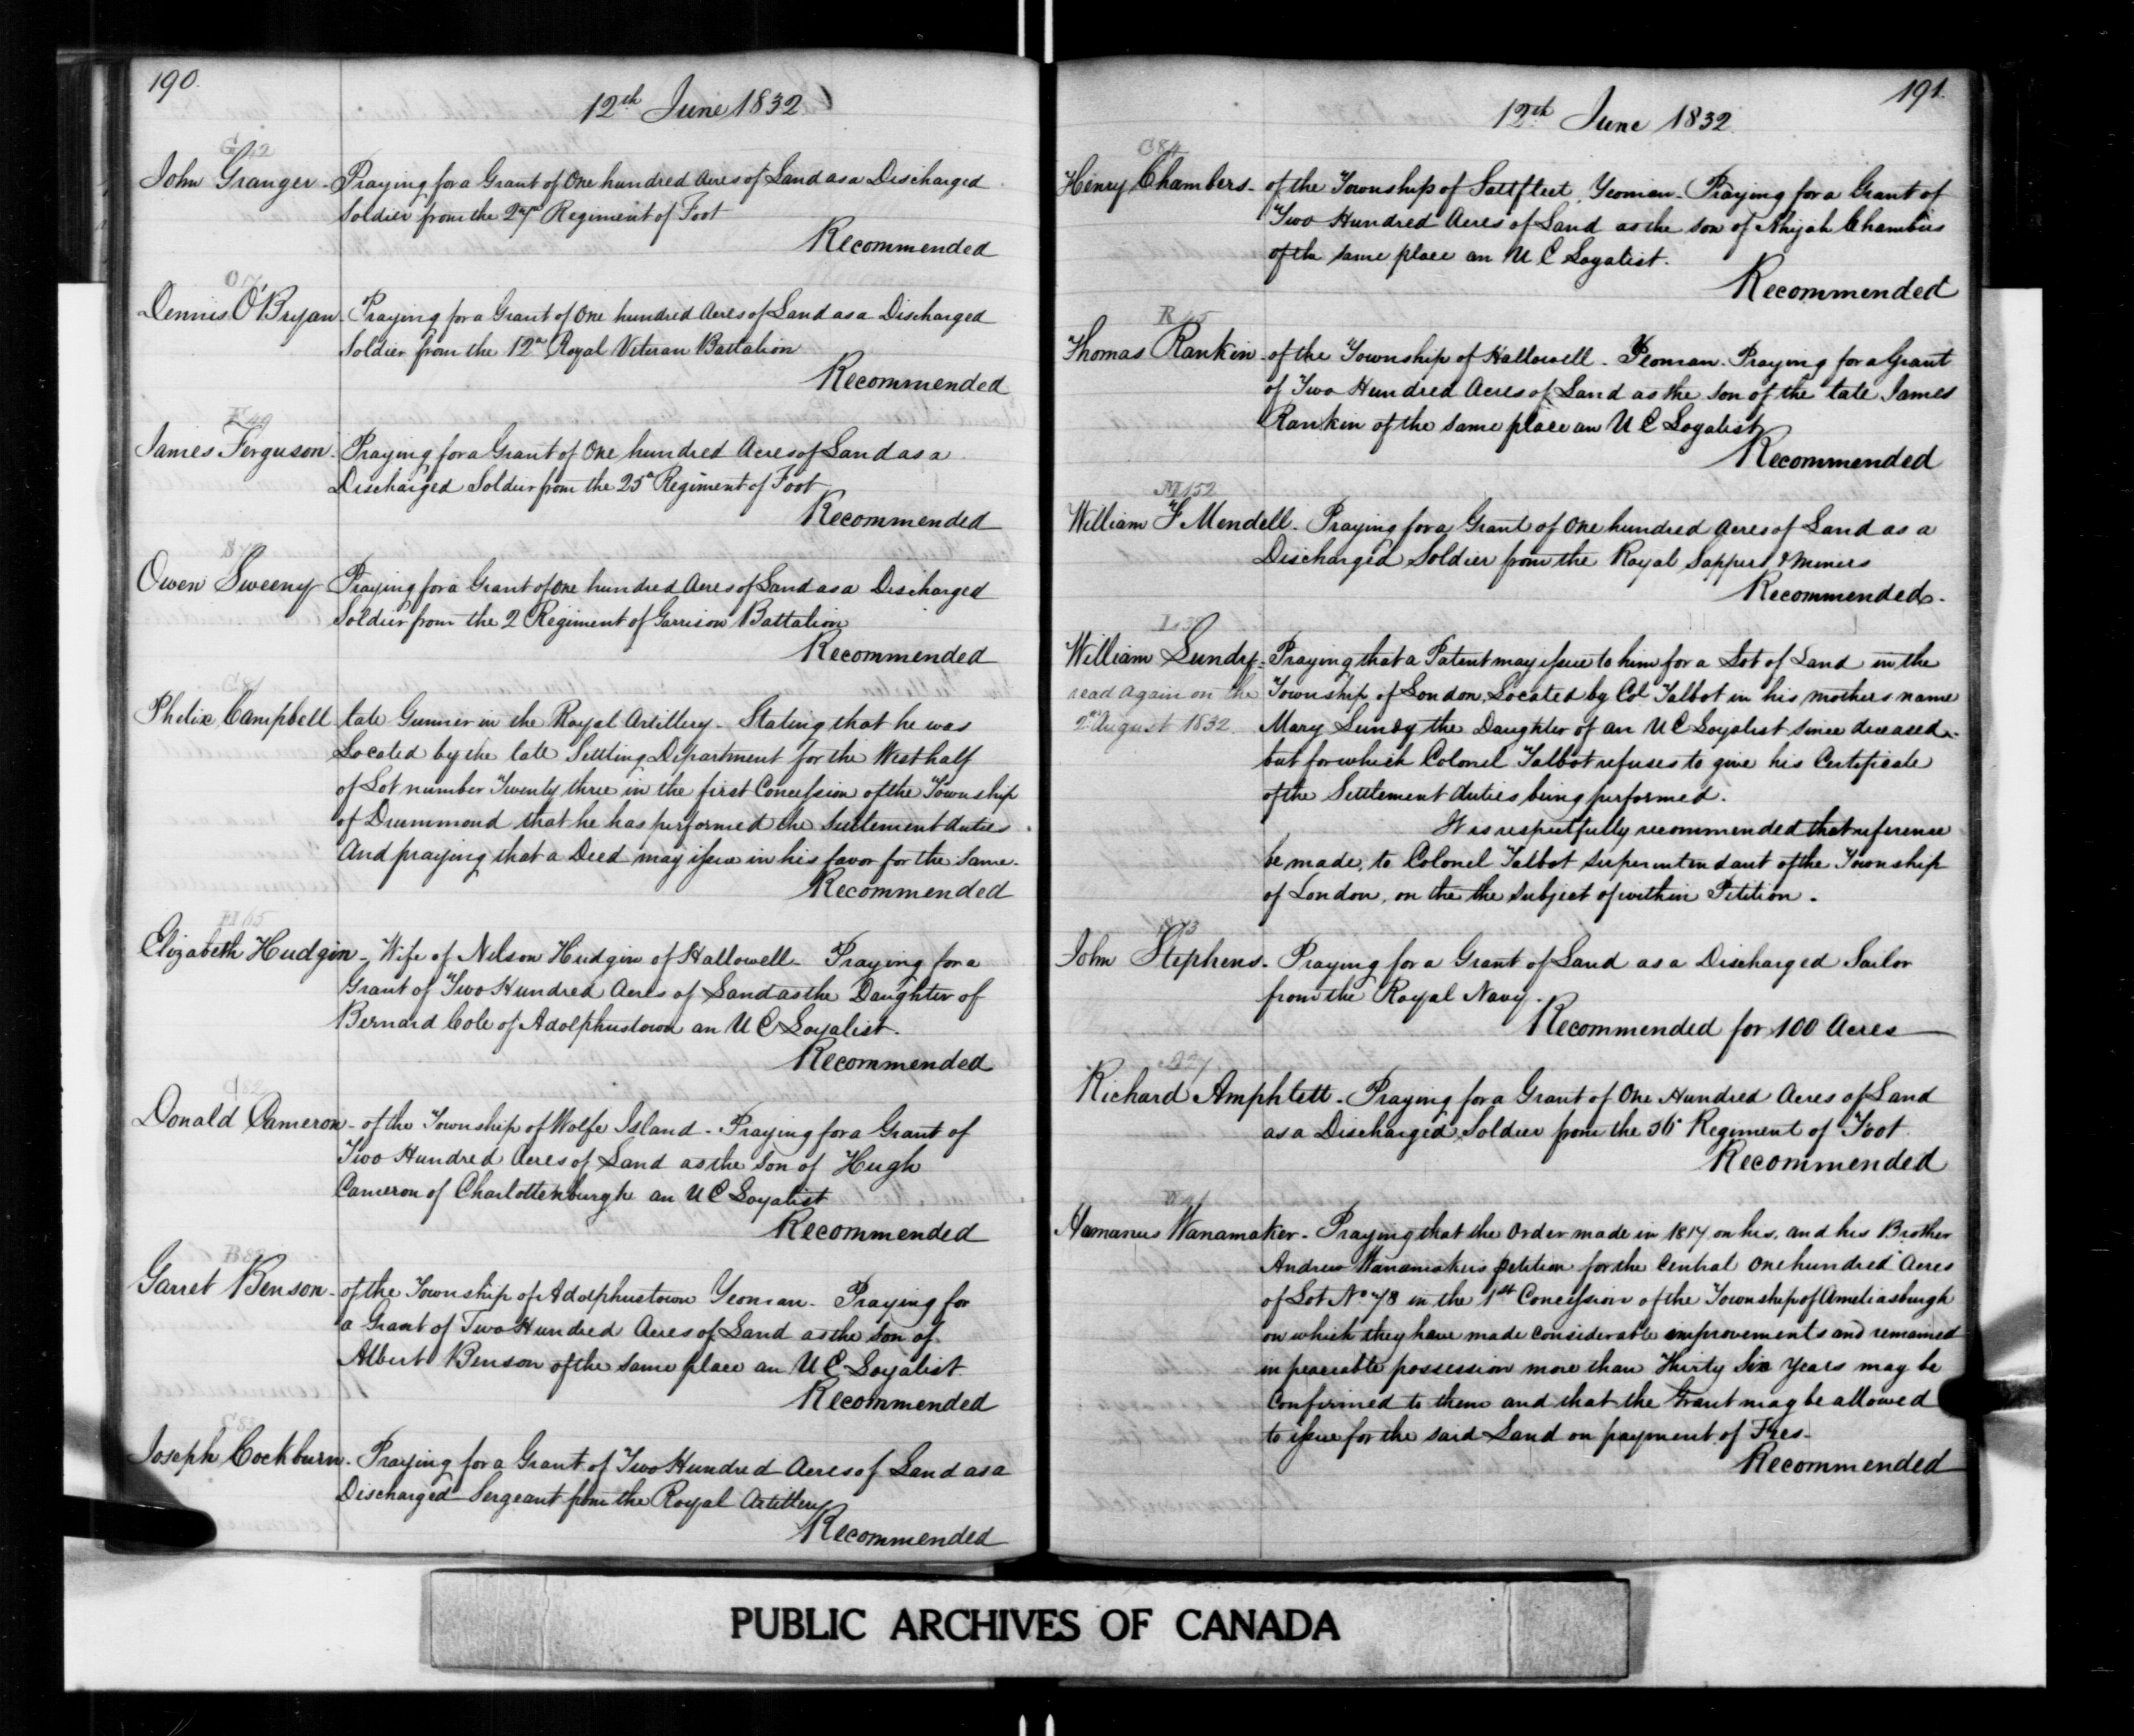 190.
12th June 1832
John Granger - Praying for a Grant of One hundred Acres of Land as a Discharged
Soldier from the 27th Regiment of Foot
Recommended
Dennis O'Bryan - Praying for a Grant of One hundred Acres of Land as a Discharged
Soldier from the 12th Royal Veteran Battalion
Recommended
F 49
James Ferguson - Praying for a Grant of One hundred Acres of Land as a
Discharged Soldier from the 25th Regiment of Foot
Recommended
Owen Sweeny - Praying for a Grant of One hundred Acres of Land as a Discharged
Soldier from the 2 Regiment of Garrison Battalion
Recommended
C 81
Phelix Campbell late Gunner in the Royal Artillery - Stating that he was
Located by the late Settling Department for the West half
of Lot number Twenty three in the first Concession of the Township
of Drummond that he has performed the Settlement duties
And praying that a Deed may issue in his favor for the Same -
Recommended
H 65
Elizabeth Hudgin - Wife of Nelson Hudgin of Hallowell - Praying for a
Grant of Two Hundred Acres of Land as the Daughter of
Bernard Cole of Adolphustown an U C Loyalist.
Recommended
C 82
Donald Cameron - of the Township of Wolfe Island - Praying for a Grant of
Two Hundred Acres of Land as the Son of Hugh
Cameron of Charlottenburgh an U C Loyalist
Recommended
Garret Benson - of the Township of Adolphustown Yeoman - Praying for
a Grant of Two Hundred Acres of Land as the Son of
Albert Benson of the same place an U C Loyalist.
Recommended
C 83
Joseph Cockburn - Praying for a Grant of Two Hundred Acres of Land as a
Discharged Sergeant from the Royal Artillery
Recommended
191.
12th June 1832
C 84
Henry Chambers - of the Township of Saltfleet, Yeoman - Praying for a Grant of
Two Hundred Acres of Land as the son of Abijah Chambers
of the same place an U C Loyalist.
Recommended
Thomas Rankin - of the Township of Hallowell - Yeoman - Praying for a Grant
of Two Hundred Acres of Land as the Son of the late James
Rankin of the same place an U C Loyalist
Recommended
M 152
William F Mendell - Praying for a Grant of One hundred Acres of Land as a
Discharged Soldier from the Royal Sappers & Miners
Recommended -
William Lundy - Praying that a Patent may issue to him for a Lot of Land in the
read again on the Township of London, Located by Col Talbot in his mothers name
2nd August 1832. Mary Lundy the Daughter of an U C Loyalist since deceased -
but for which Colonel Talbot refuses to give his Certificate
of the Settlement duties being performed.
It is respectfully recommended that reference
be made, to Colonel Talbot superintendant of the Township
of London, on the the subject of within Petition.
John Stephens - Praying for a Grant of Land as a Discharged Sailor
from the Royal Navy.
Recommended for 100 Acres
Richard Amphlett - Praying for a Grant of One Hundred Acres of Land
as a Discharged Soldier from the Regiment of Foot
Recommended
Wanamaker - Praying that the Order made in 1817 on his, and his Brother
Andrew Wanamakers petition for the Central One hundred Acres
of Lot No 78 in the 1st Concession of the Township of Ameliasburgh
on which they have made considerable improvements and remained
in peaceable possession more than Thirty Six Years may be
Confirmed to them and that the Grant may be allowed
to issue for the said Land on payment of Fees -
Recommended
PUBLIC ARCHIVES OF CANADA